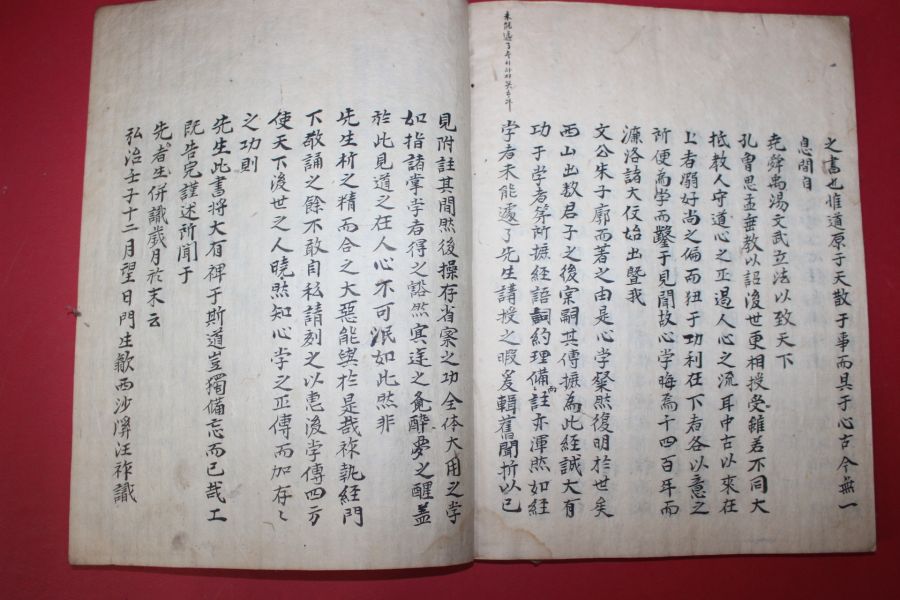 之書也惟道原于天散于事而具于心古今無一
息間自
堯舜禹湯文武立法以致天下
孔曾思孟垂教以詔後世更相授受雖若不同大
抵教人守道心之正遏人心之流耳中古以來在
上者溺好尚之偏而狃于功利在下者各以意之
所便為學而鑿于見聞故心学晦焉千四百年而
濂洛諸大伇始出曁我
文公朱子廓而著之由是心學粲然復明於世矣
西山出数君子之後宗嗣其傳摭為此經誠大有
功于学者第所摭經語詞約理備而註亦渾然如經
学者未能遽了先生講授之暇爰輯舊聞折以己
見附註其間然後操存省察之功全体大用之学
如指諸掌学者得之豁然冥迷之覺醉夢之醒蓋
於此見道之在人心不可泯如此然非
先生析之精而合之大惡能與於是哉祚執經門
下敬誦之餘不敢自私請刻之以惠後学傳四方
使天下後世之人曉然知心学之正傳而加存之
之功則
先生此書將大有裨于斯道豈獨備忘而已哉工
既告完謹述所聞于
先者生併識歲月於末云
弘治壬子十二月望日門生歙西沙溪汪祚識